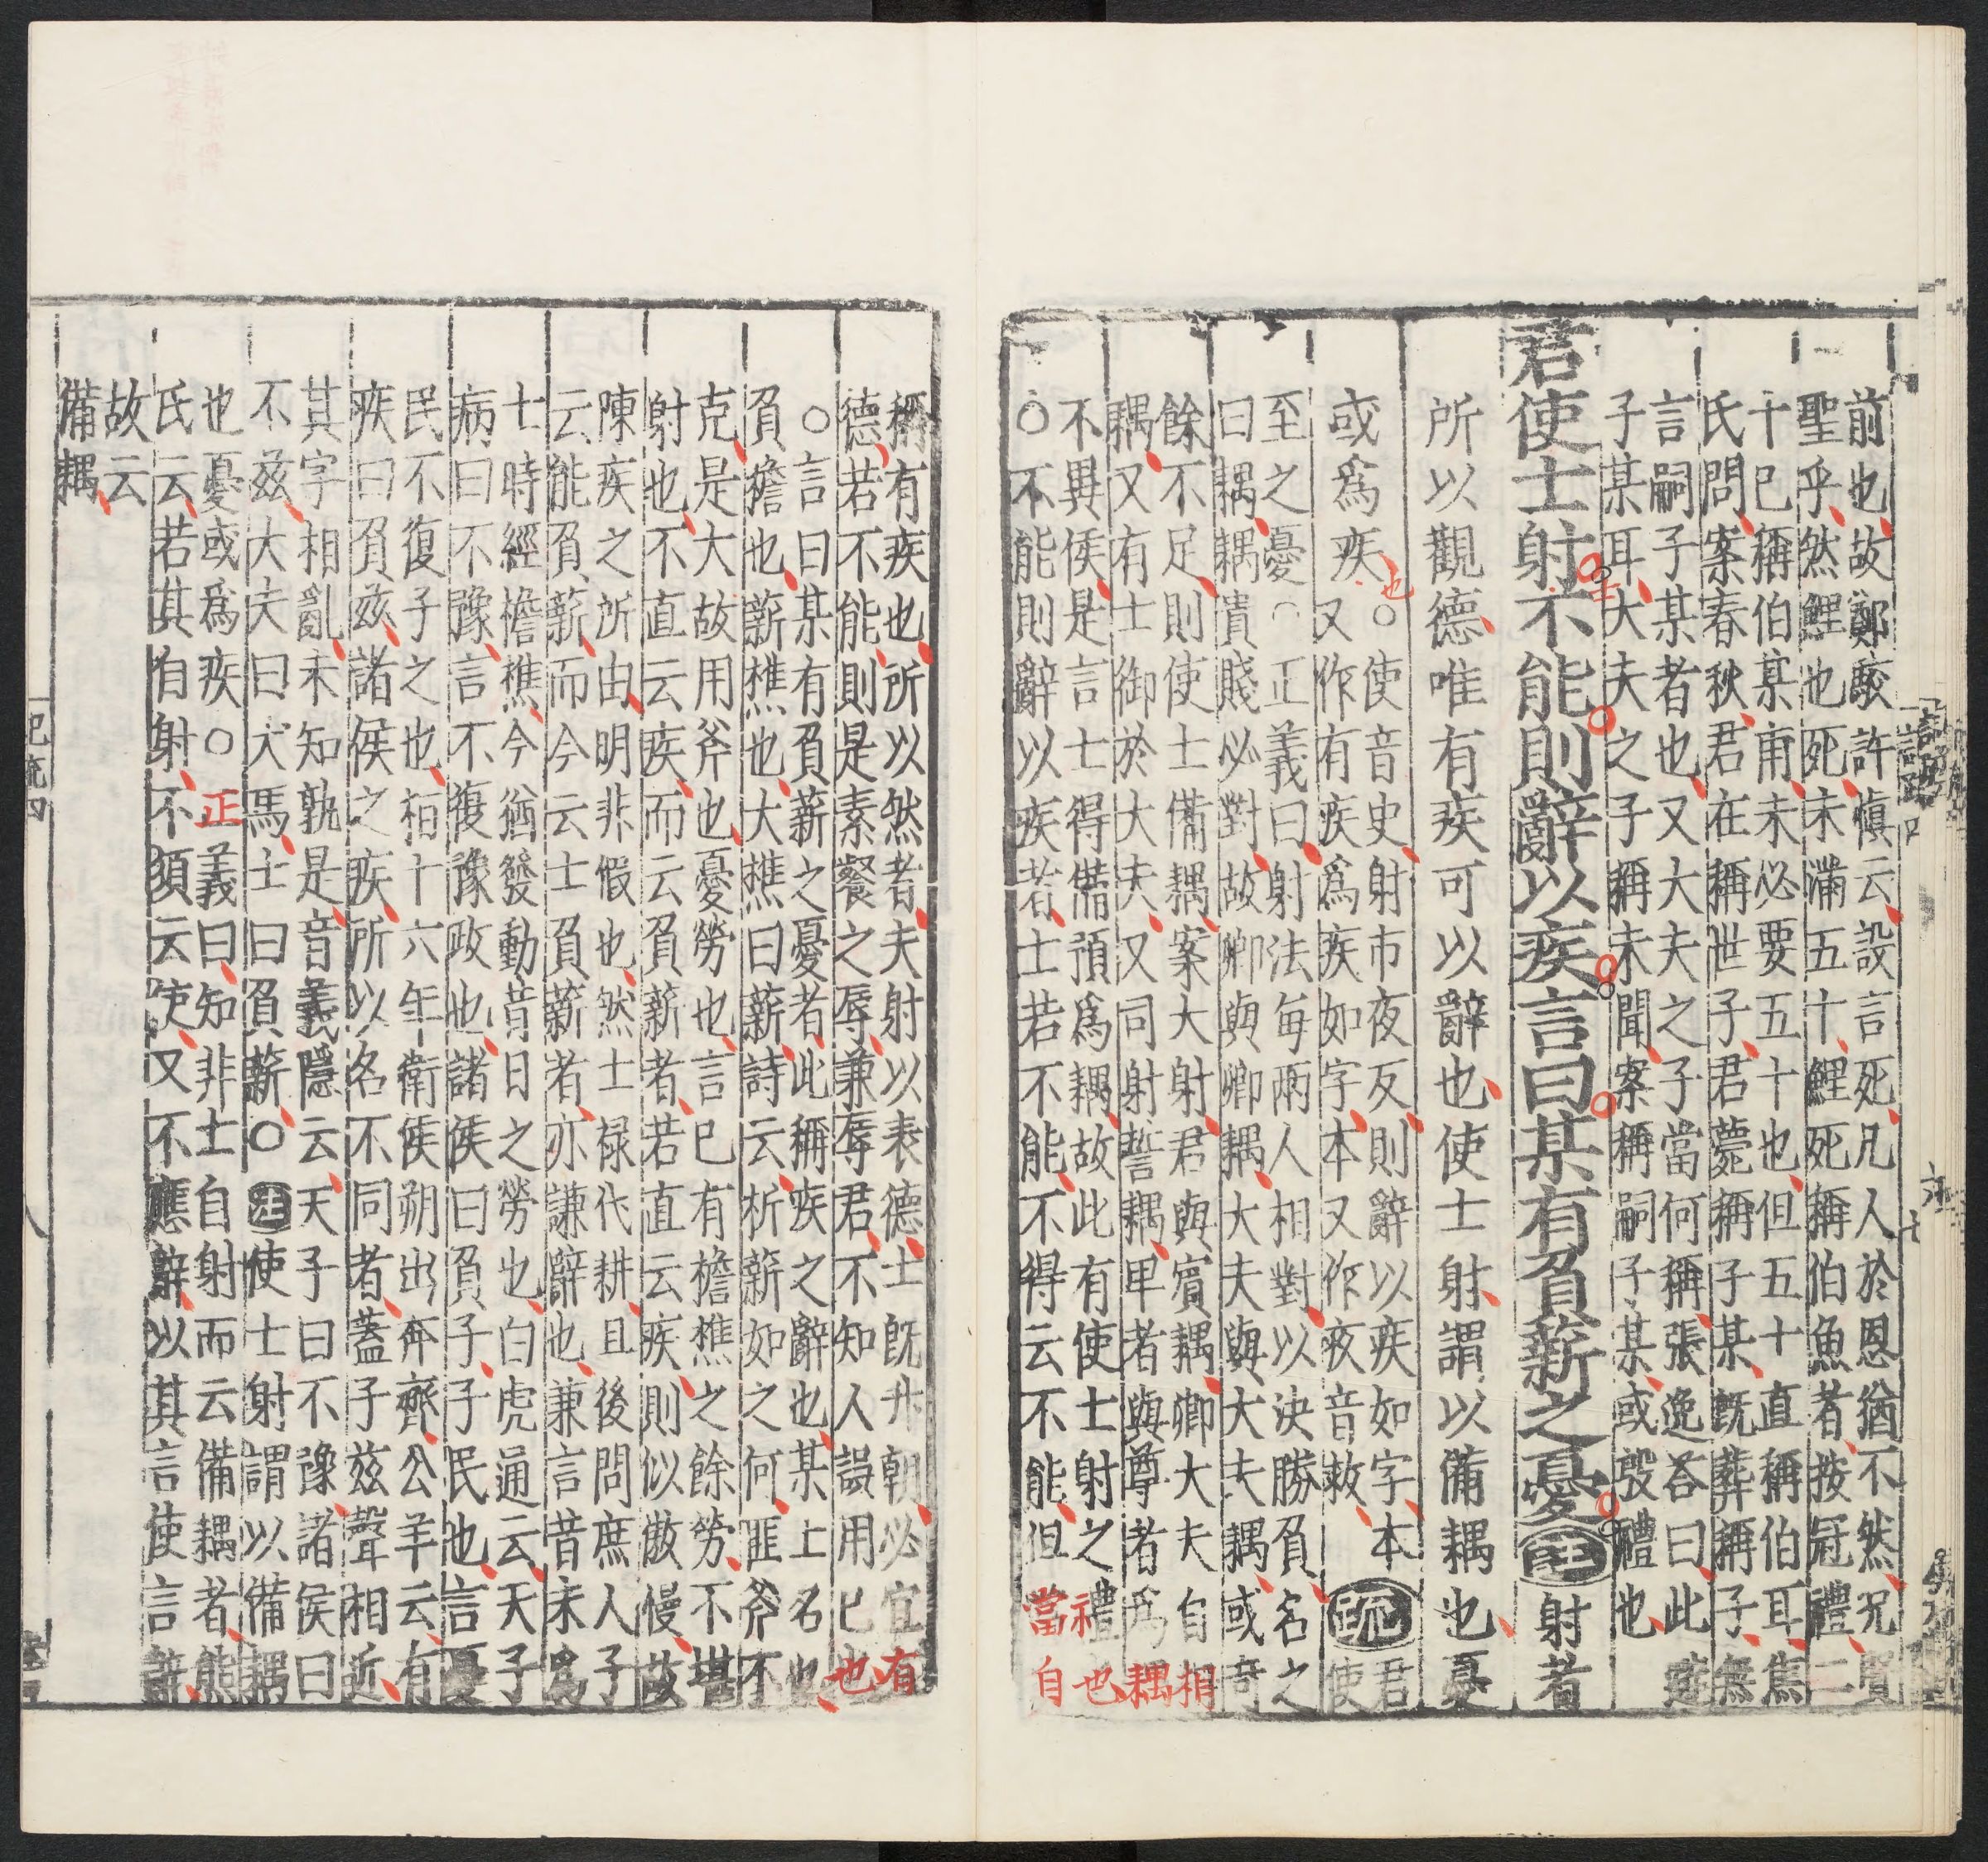 前也故鄭駮許慎云設言死凡人於恩猶不然況賢
聖乎然鯉也死未滿五十鯉死稱伯魚者按冠禮二
十已稱伯某甫未必要五十也但五十直稱伯耳焦
氏問案春秋君在稱世子君薨稱子某既葬稱子無
言嗣子某者也又大夫之子當何稱張逸荅曰此避
子某耳大夫之子稱未聞案稱嗣子某或殷禮也
君使士射不能則辭以疾言曰某有負薪之憂注射者
所以觀德唯有疾可以辭也使士射謂以備耦也憂
或爲疾也○使音史射市夜反則辭以疾如字本
又作有疾爲疾如字本又作疚音救疏君使
至之憂○正義曰射法每兩人相對以決勝負名之
曰耦耦貴賤必對故卿與卿耦大夫與大夫耦或奇
餘不足則使士備耦案大射君與賓耦卿大夫自相
耦又有士御於大夫又同射誓耦卑者與尊者爲耦
不異侯是言士得備預爲耦故此有使士射之禮也
○不能則辭以疾者士若不能不得云不能但當自
稱有疾也所以然者夫射以表德士既升朝必宜有
德若不能則是素餐之辱兼辱君不知人誤用已也
○言曰某有負薪之憂者此稱疾之辭也某士名也
負擔也薪樵也大樵曰薪詩云析薪如之何匪斧不
克是大故用斧也憂勞也言已有擔樵之餘勞不堪
射也不直云疾而云負薪者若直云疾則似傲慢故
陳疾之所由明非假也然士禄代耕且後問庶人子
云能負薪而今云士負薪者亦謙辭也兼言昔未爲
士時經擔樵今猶發動昔日之勞也白虎通云天子
病曰不豫言不復豫政也諸侯曰負子子民也言憂
民不復子之也桓十六年衛侯朔出奔齊公羊云有
疾曰負兹諸侯之疾所以名不同者蓋子兹聲相近
其字相亂未知孰是音義隱云天子曰不豫諸侯曰
不兹大夫曰犬馬士曰負薪○注使士射謂以備耦
也憂或爲疾○正義曰知非士自射而云備耦者熊
氏云若其自射不須云使又不應辭以其言使言辭
故云
備耦
記疏四
八